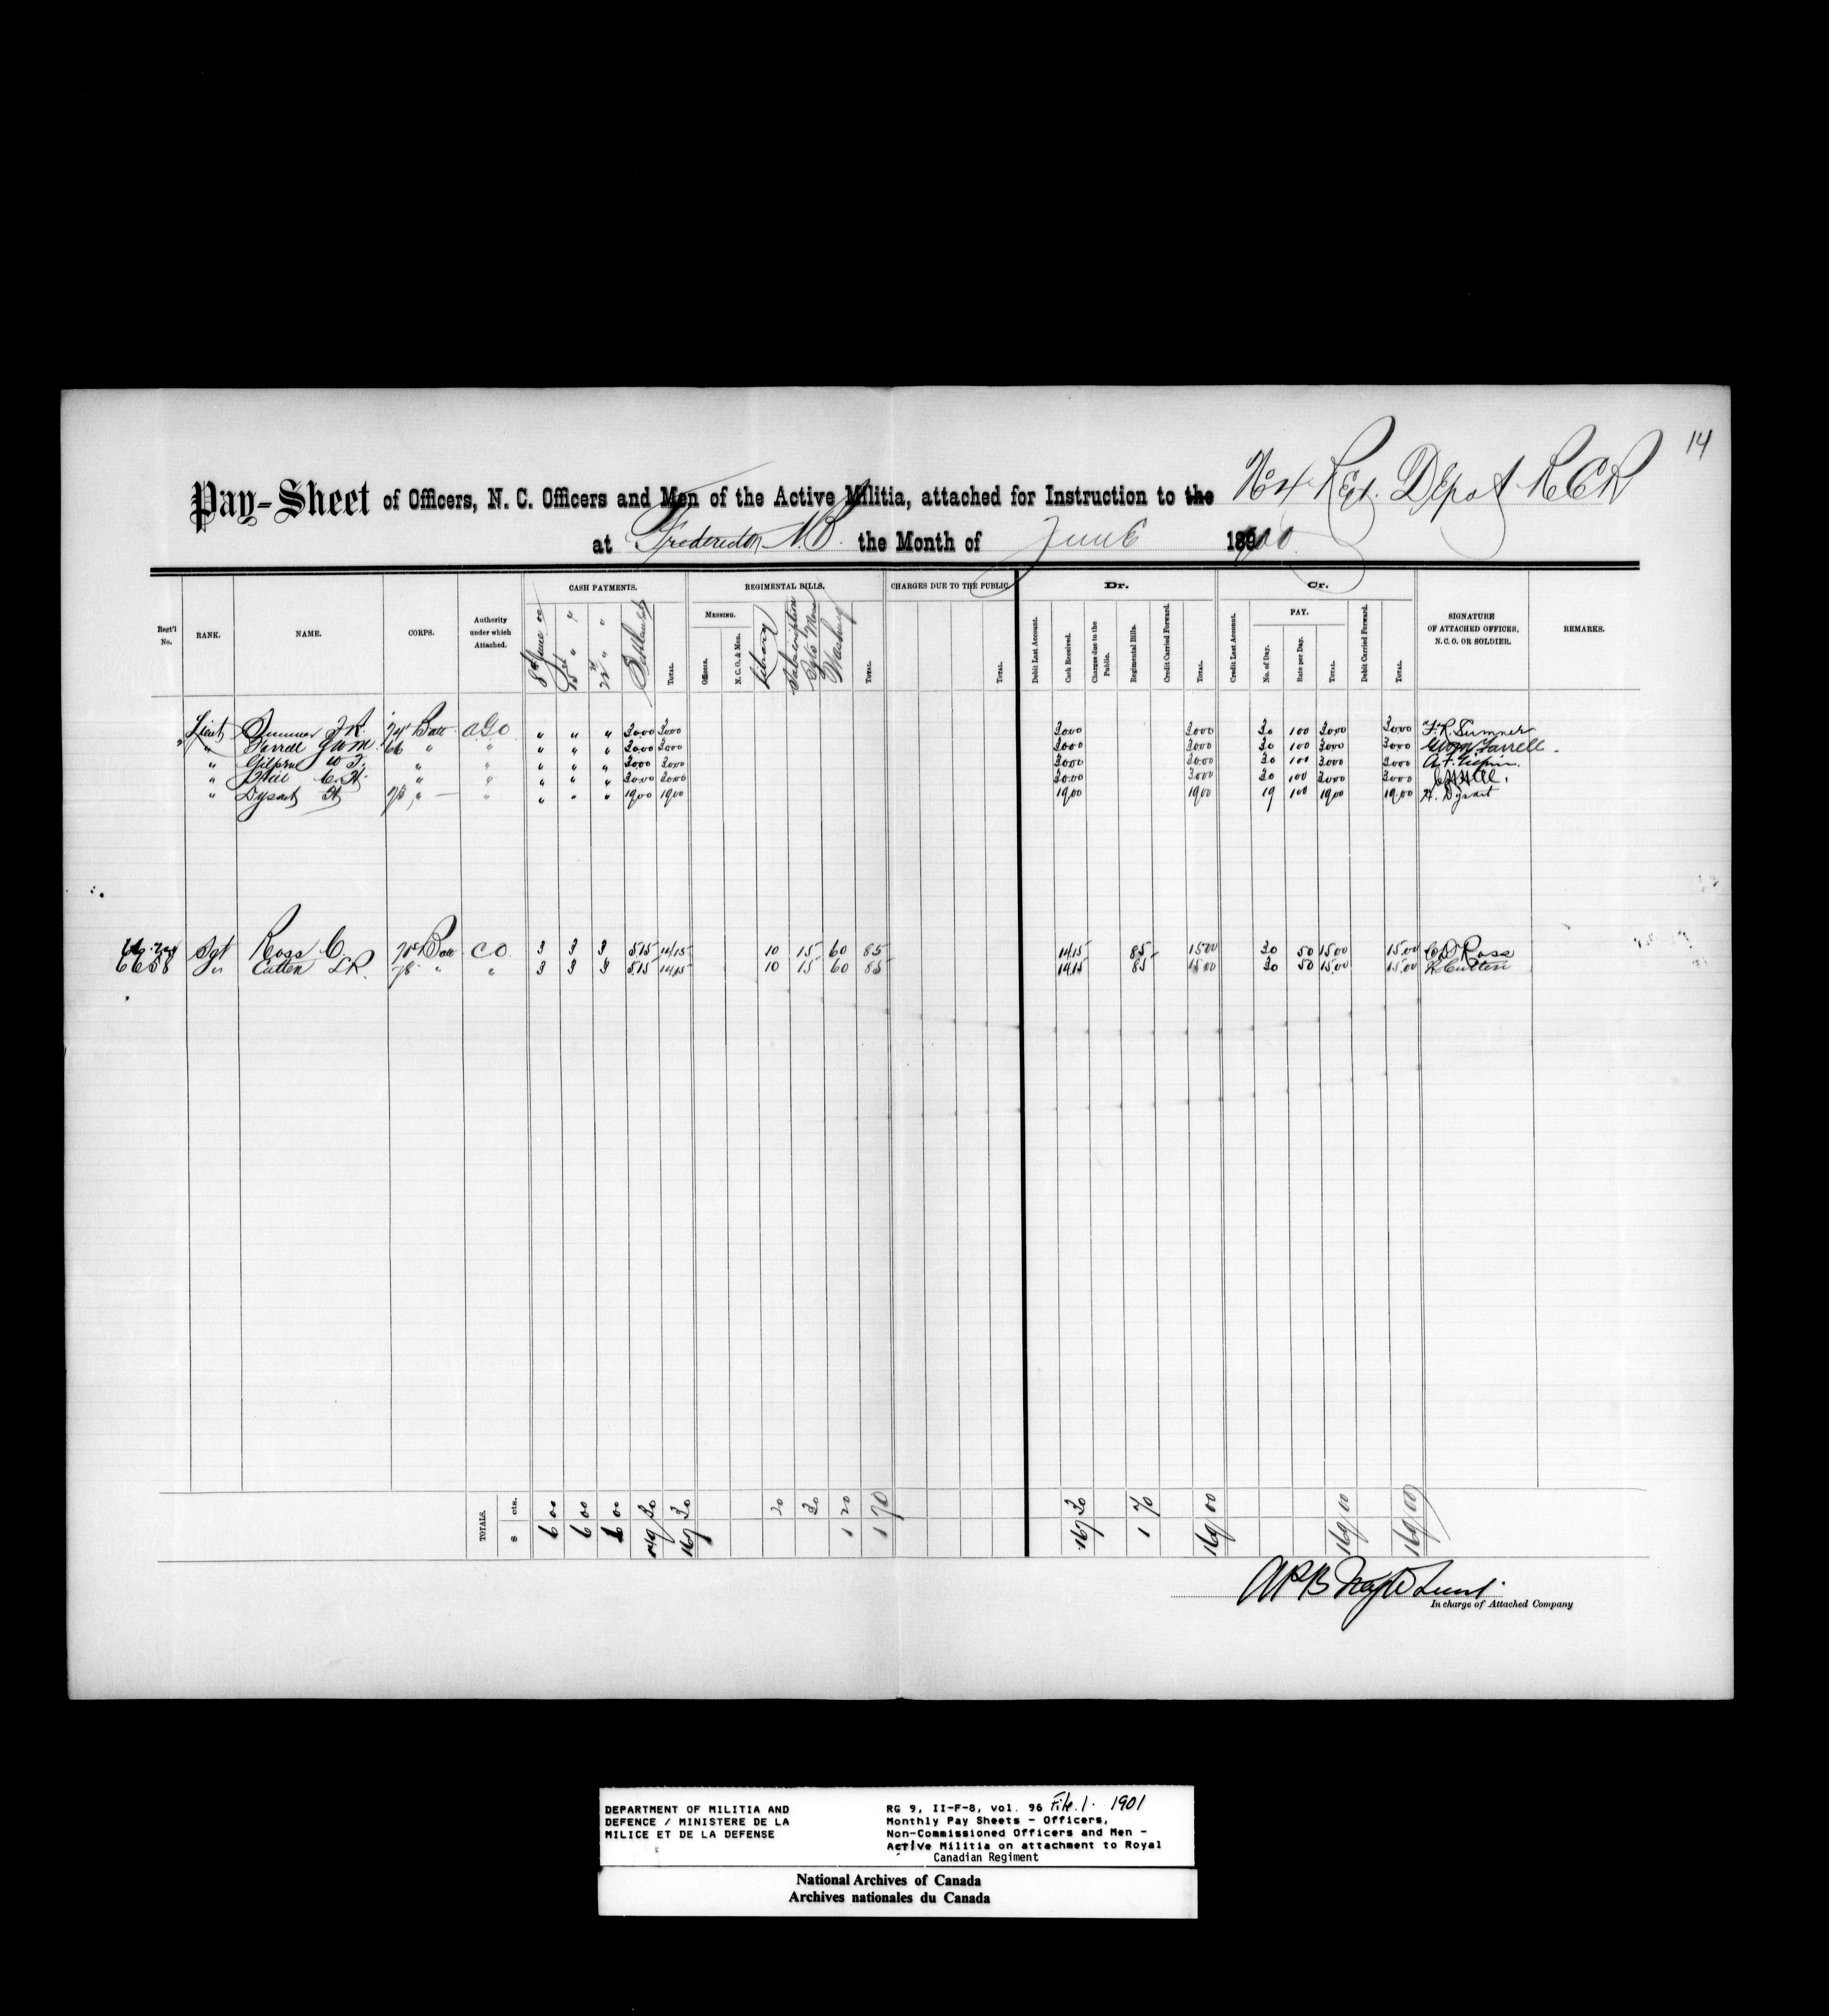 14
Pay-Sheet of Officers, N. C. Officers and Men of the Active Militia, attached for Instruction to the No 4 Regt. Depot RCR
at Fredericton N.B. the Month of June 1900
CASH PAYMENTS. REGIMENTAL BILLS. CHARGES DUE TO THE PUBLIC Dr. Cr.
Reg'l No. RANK. NAME. CORPS. Authority under which Attached. 8th June 00 15th " " 22nd " " Settlement TOTAL. MESSING. Officers. N. C. O. & Men. Library Subscription Sgts Mess Washing TOTAL. TOTAL. Debit Last Account. Cash Received. Charges due to the Public. Regimental Bills. Credit Carried Forward. TOTAL. Credit Last Account. PAY. No. of Day. Rate per Day. TOTAL. Debit Carried Forward. TOTAL. SIGNATURE OF ATTACHED OFFICER, N. C. O. OR SOLDIER. REMARKS.
Lieut Sumner F.R. 74 Batt AGO " " " 30.00 30.00 30.00 30.00 30 1 00 30.00 30.00 F. R. Sumner
" Farrell GWM. 66 " " " " " 30.00 30.00 30.00 30.00 30 1 00 30.00 30.00 Farrell
" " " " " " 30.00 30.00 30.00 30.00 30 1 00 30.00 30.00
" C.H. " " " " " 30.00 30.00 30.00 30.00 30 1 00 30.00 30.00
" Dysart A 73 " " " " " 19.00 19.00 19.00 19.00 19 1 00 19.00 19.00 A. Dysart
Sgt Ross C. Batt C.O. 3 3 3 5.15 14.15 10 15 60 85 14.15 85 15.00 30 50 15.00 15.00 C.D. Ross
6658 " Cutten LR. 78 " " 3 3 3 5.15 14.15 10 15 60 85 14.15 85 15.00 30 50 15.00 15.00 Cutten
TOTALS. $ cts. 6 00 6 00 6 00 149 30 167 30 20 30 1 20 1 70 167 30 1 70 169 00 169 00 169 00
In charge of Attached Company
DEPARTMENT OF MILITIA AND
DEFENCE / MINISTERE DE LA
MILICE ET DE LA DEFENSE
RG 9, II-F-8, vol. 96 File.1. 1901
Monthly Pay Sheets - Officers,
Non-Commissioned Officers and Men -
Active Militia on attachment to Royal
Canadian Regiment
National Archives of Canada
Archives nationales du Canada